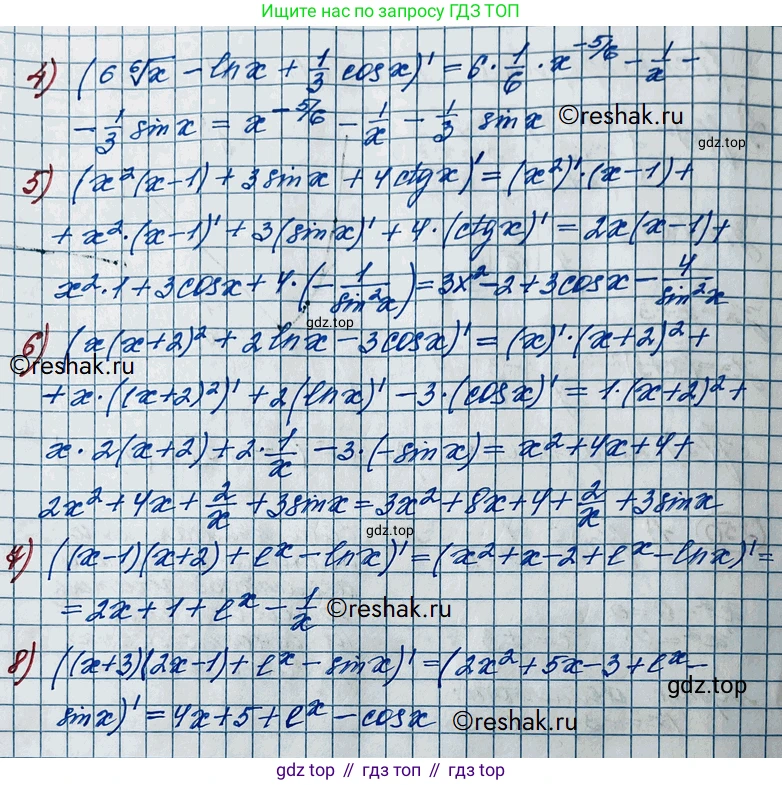 Ищите нас по запросу ГДЗ ТОП
4) (6 ⁶√x - lnx + 1/3 cosx)' = 6 · 1/6 · x^(-5/6) - 1/x -
- 1/3 sinx = x^(-5/6) - 1/x - 1/3 sinx ©reshak.ru
gdz.top
5) (x²(x-1) + 3sinx + 4ctgx)' = (x²)'·(x-1) +
+ x²·(x-1)' + 3(sinx)' + 4·(ctgx)' = 2x(x-1) +
x²·1 + 3cosx + 4·(-1/sin²x) = 3x²-2 + 3cosx - 4/sin²x
gdz.top
6) (x(x+2)² + 2lnx - 3cosx)' = (x)'·(x+2)² +
©reshak.ru
+ x·((x+2)²)' + 2(lnx)' - 3·(cosx)' = 1·(x+2)² +
x·2(x+2) + 2·1/x - 3·(-sinx) = x² + 4x + 4 +
2x² + 4x + 2/x + 3sinx = 3x² + 8x + 4 + 2/x + 3sinx
gdz.top
7) ((x-1)(x+2) + e^x - lnx)' = (x² + x - 2 + e^x - lnx)' =
= 2x + 1 + e^x - 1/x ©reshak.ru
8) ((x+3)(2x-1) + e^x - sinx)' = (2x² + 5x - 3 + e^x -
gdz.top
sinx)' = 4x + 5 + e^x - cosx ©reshak.ru
gdz top // гдз топ // gdz.top